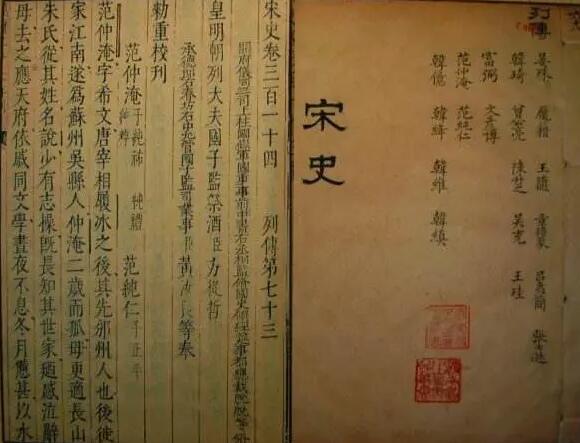 列傳
晏殊 龐籍 王隨 章得象 呂夷簡 張士遜
韓琦 曾公亮 陳升之 吳充 王珪
富弼 文彥博
范仲淹 范純仁
韓億 韓絳 韓維 韓縝
宋史
宋史卷三百一十四 列傳第七十三
開府儀同三司上柱國錄軍國重事前中書右丞相監修國史領經筵事都總裁脫脫等修
皇明朝列大夫國子監祭酒臣方從哲
承德郎右春坊右中允管國子監司業事臣黃汝良等奉
勅重校刊
范仲淹 子純祐 純禮 純粹 范純仁 子正平
范仲淹字希文唐宰相履冰之後其先邠州人也後徙
家江南遂爲蘇州吳縣人仲淹二歲而孤母更適長山
朱氏從其姓名說少有志操既長知其世家迺感泣辭
母去之應天府依戚同文學晝夜不息冬月憊甚以水